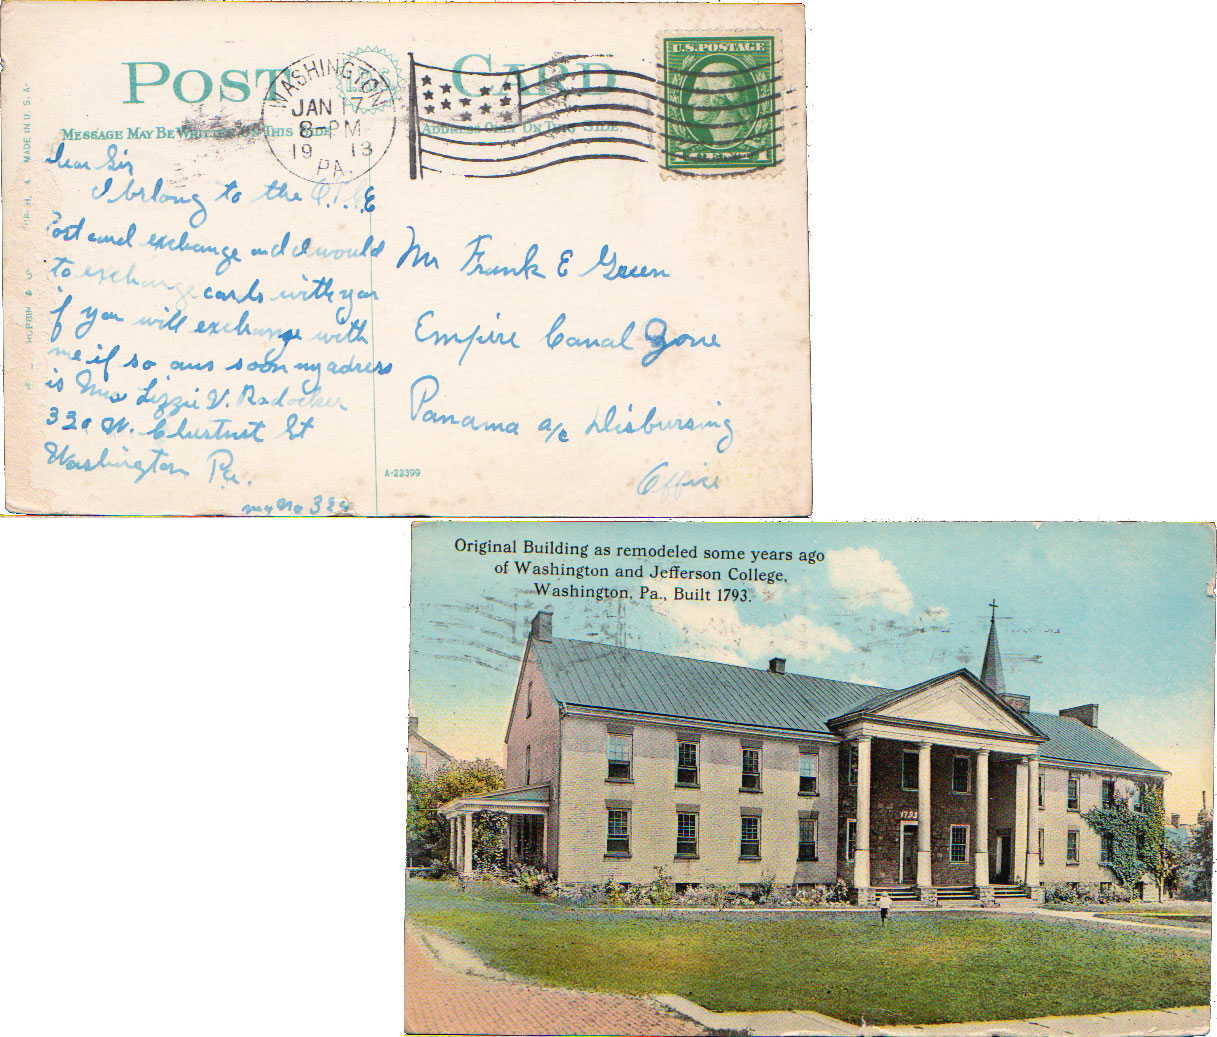 POST CARD
WASHINGTON
JAN 17
8-PM
1913
PA.
U.S. POSTAGE
MESSAGE MAY BE WRITTEN ON THIS SIDE
ADDRESS ONLY ON THIS SIDE.
MADE IN U. S. A.
Dear Sir
I belong to the
Post card exchange and I would
to exchange cards with you
if you will exchange with
me if so ans soon my adress
is Lizzie V.
320 W. Chestnut St
Washington Pa.
my No 324
Mr Frank E Green
Empire Canal Zone
Panama a/c Disbursing
Office
A-22399
Original Building as remodeled some years ago
of Washington and Jefferson College,
Washington, Pa., Built 1793.
1793